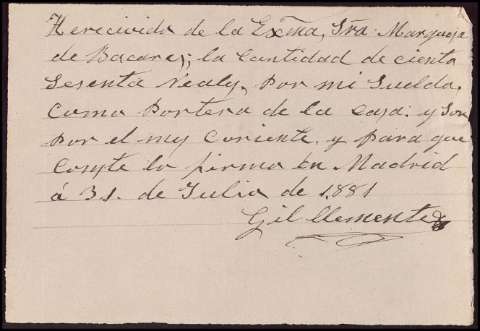 He recivido de la Exma, Sra. Marquesa
de Bacares; la Cantidad de ciento
Sesenta Realy, por mi Sueldo,
Como Portero de la Casa. y Son
por el my Coriente. y para que
Conste lo firmo en Madrid
á 31. de Julio de 1881
Gil Clemente